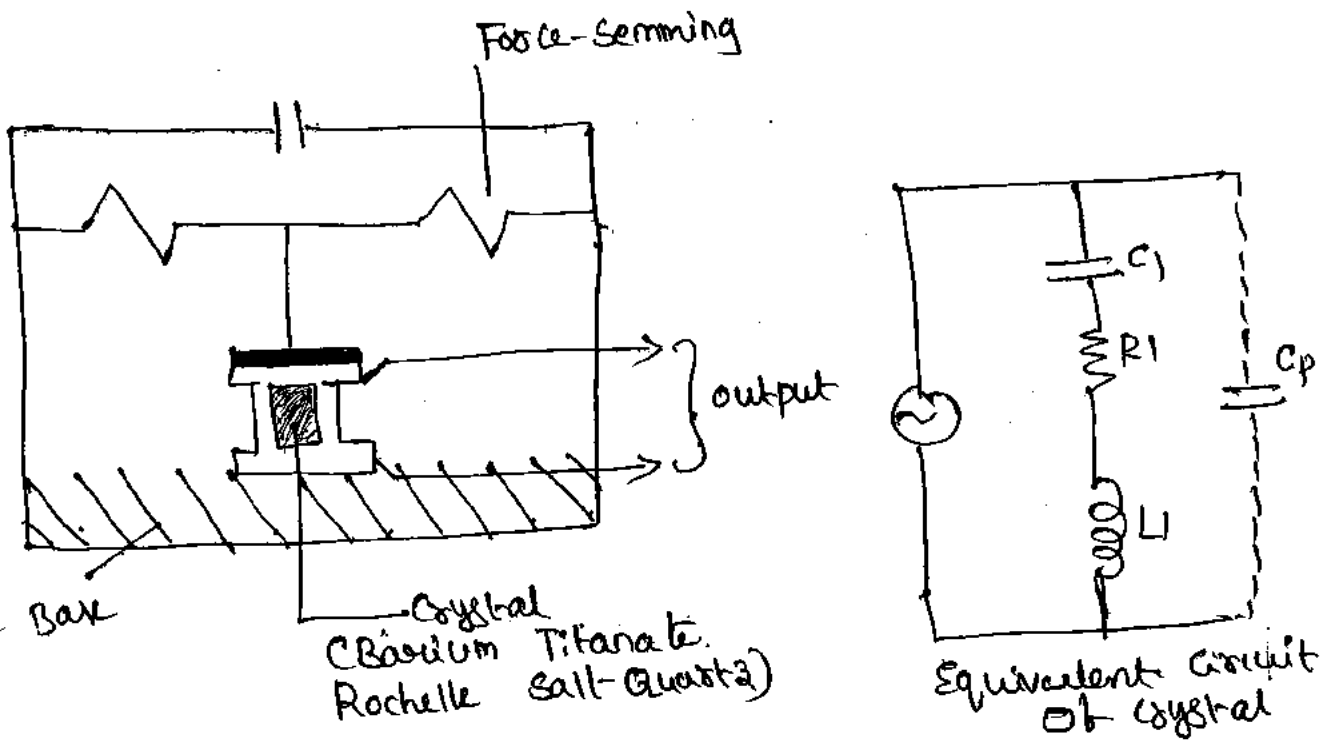 Force-Semming
output
Base
Crystal
(Barium Titanate.
Rochelle Salt-Quartz)
C1
R1
L1
Cp
Equivalent Circuit
Of Crystal